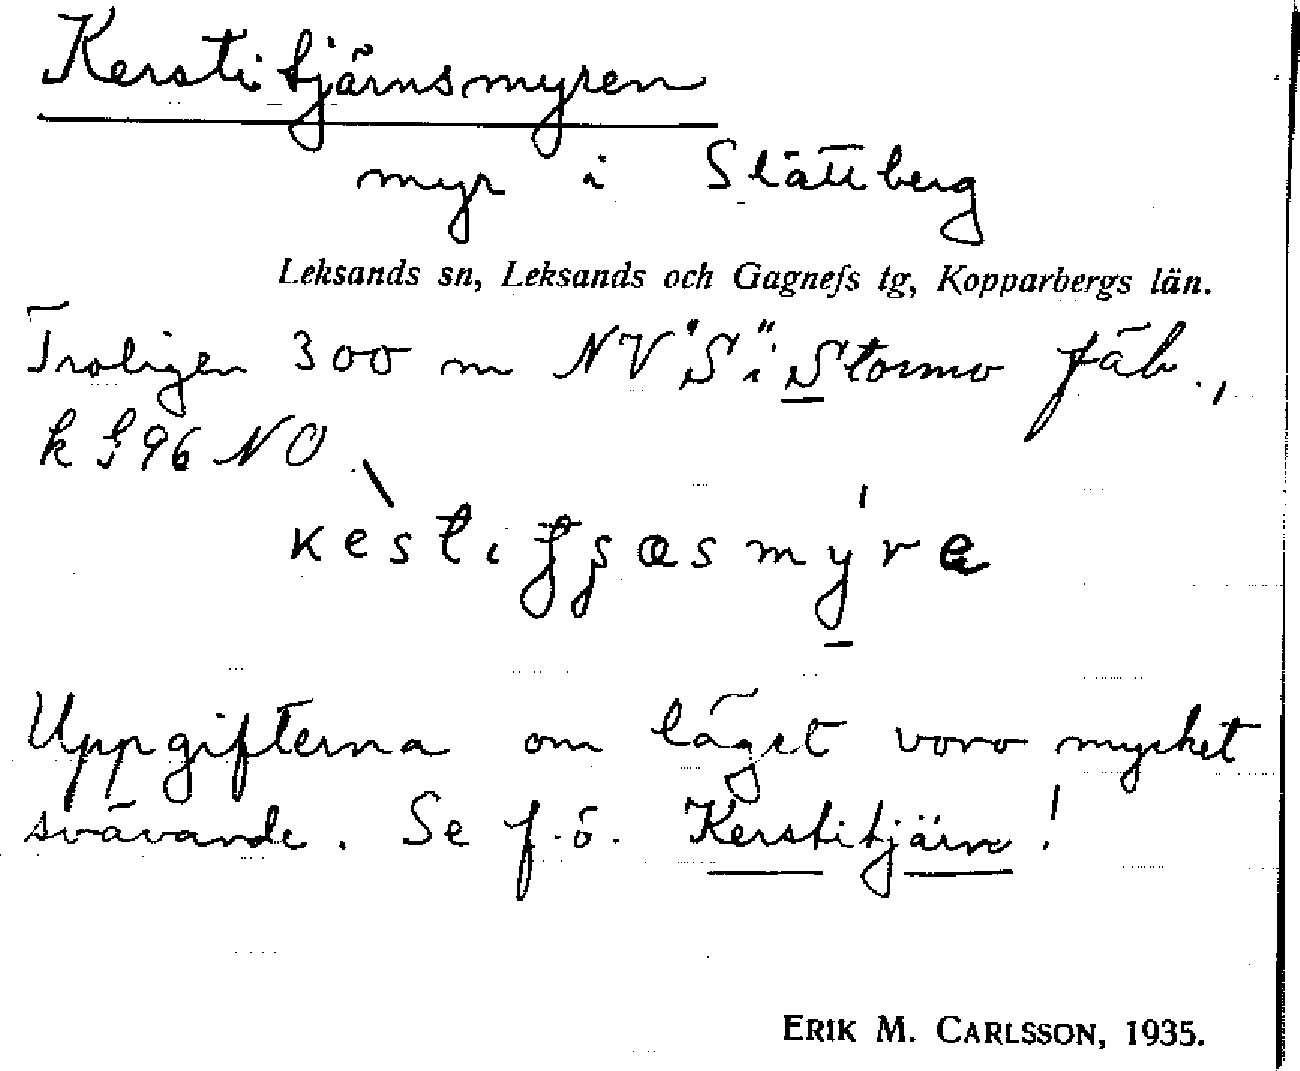 Kerstitjärnsmyren
myr i Slättberg
Leksands sn, Leksands och Gagnefs tg, Kopparbergs län.
Troligen 300 m NV "S" i Stormo fäb.,
k § 96 NO
Uppgifterna om läget voro mycket
svävande. Se f.ö. Kerstitjärn!
ERIK M. CARLSSON, 1935.